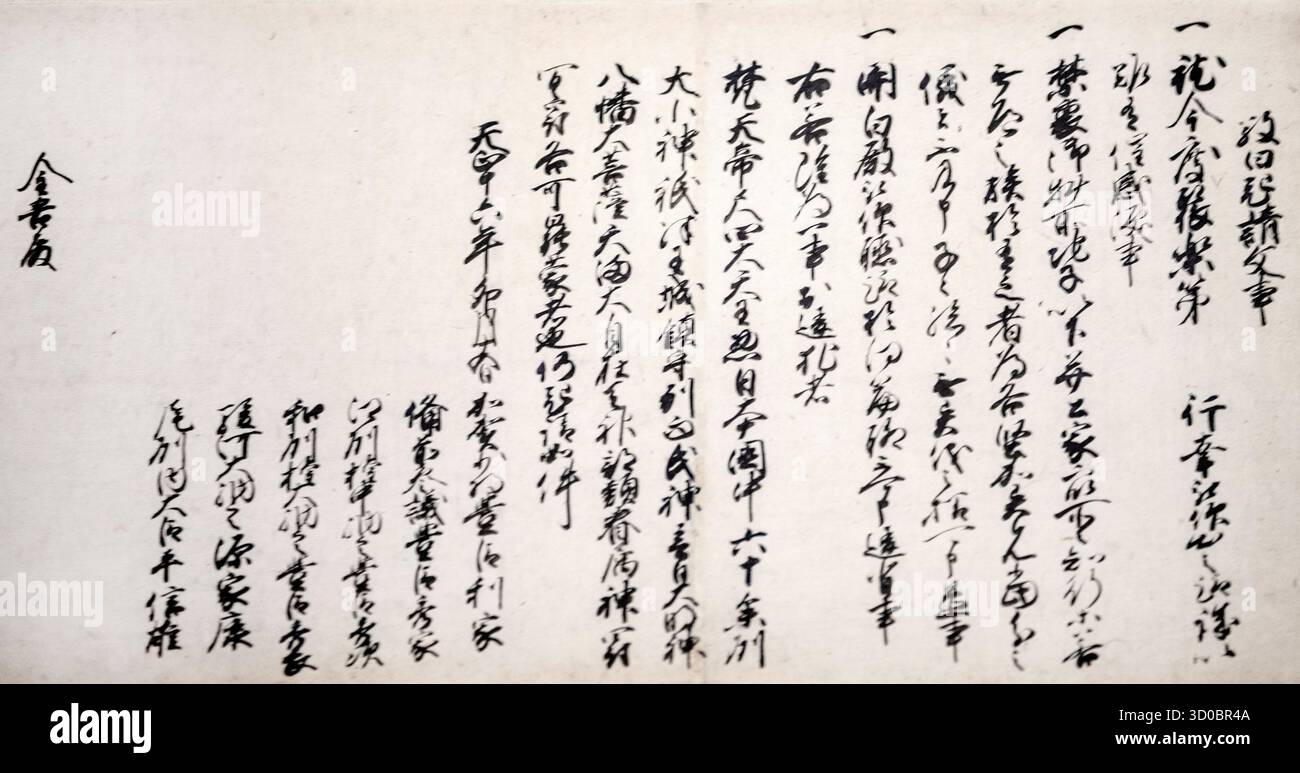 敬白起請文事
一就今度聚楽第 行幸被仰出之趣誠以
難有催感涙事
一禁裏御料所地子以下并公家所々知行等若
無道之族於有之者為各堅加意見当分之
儀不及申子々孫々無異儀之様可申置事
一関白殿被仰聴趣於何篇聊不可申違背事
右若雖為一事於違犯者
梵天帝尺四大天王惣日本国中六十余州
大小神祇殊王城鎮守別而氏神春日大明神
八幡大菩薩天満大自在天神部類眷属神罰
冥罰各可罷蒙者也仍起請如件
天正十六年卯月十五日 加賀少将豊臣利家
備前参議豊臣秀家
江州権中納言豊臣秀次
和州権大納言豊臣秀長
駿河大納言源家康
尾州内大臣平信雄
金吾殿
alamy
Image ID: 3D0BR4A
www.alamy.com